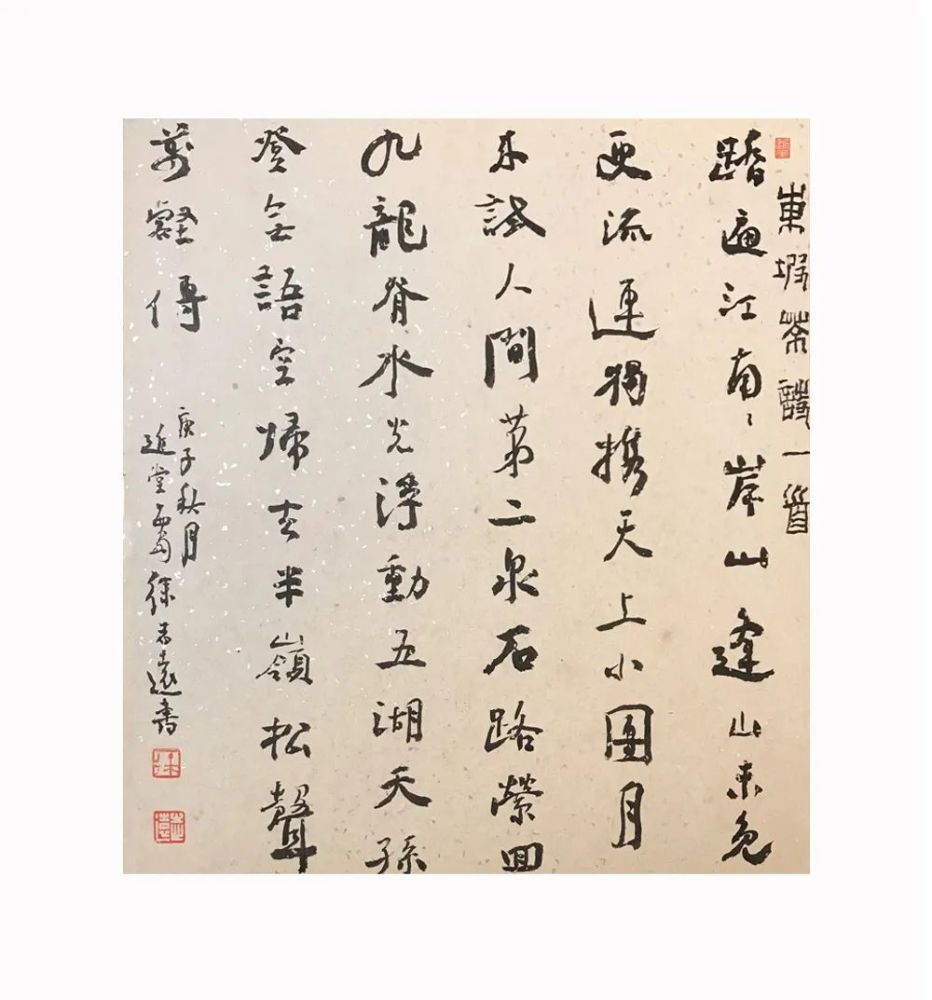 東坡茶詩一首
踏遍江南〻岸山逢山未免
更流連獨携天上小團月
來試人間第二泉石路縈回
九龍脊水光浮動五湖天孫
登無語空歸去半嶺松聲
萬壑傳
庚子秋月
堂徐遠書